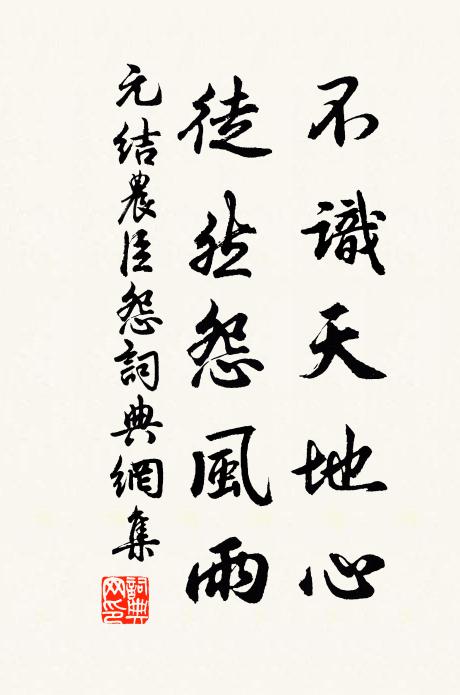 不識天地心
徒然怨風雨
元結農臣怨詞典網集
詞典
网印